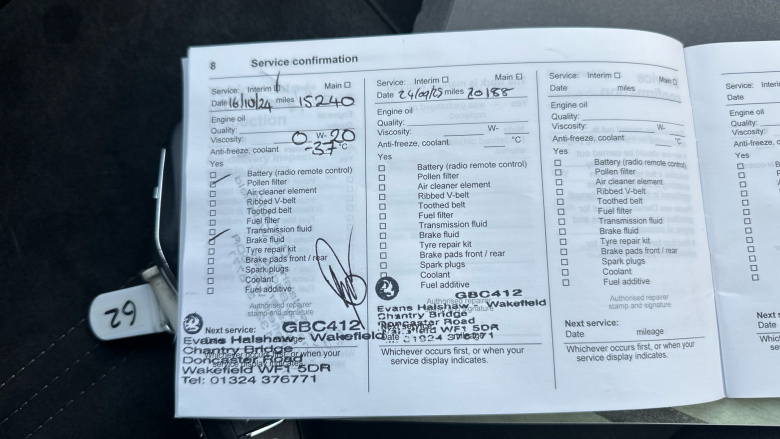 8 Service confirmation
Service: Interim Main
Date 16/10/24 miles 15240
Engine oil
Quality:
Viscosity: 0 W- 20
Anti-freeze, coolant -37 °C
Yes
Battery (radio remote control)
Pollen filter
Air cleaner element
Ribbed V-belt
Toothed belt
Fuel filter
Transmission fluid
Brake fluid
Tyre repair kit
Brake pads front / rear
Spark plugs
Coolant
Fuel additive
Authorised repairer
stamp and signature
Next service:
GBC412
Evans Halshaw - Wakefield
Chantry Bridge
Doncaster Road
Wakefield WF1 5DR
Tel: 01324 376771
Whichever occurs first, or when your
service display indicates.
Service: Interim Main
Date 24/09/25 miles 20188
Engine oil
Quality:
Viscosity: W-
Anti-freeze, coolant °C
Yes
Battery (radio remote control)
Pollen filter
Air cleaner element
Ribbed V-belt
Toothed belt
Fuel filter
Transmission fluid
Brake fluid
Tyre repair kit
Brake pads front / rear
Spark plugs
Coolant
Fuel additive
Authorised repairer
stamp and signature
GBC412
Evans Halshaw - Wakefield
Chantry Bridge
Doncaster Road
Wakefield WF1 5DR
01924 376771
Whichever occurs first, or when your
service display indicates.
Service: Interim Main
Date miles
Engine oil
Quality:
Viscosity: W-
Anti-freeze, coolant °C
Yes
Battery (radio remote control)
Pollen filter
Air cleaner element
Ribbed V-belt
Toothed belt
Fuel filter
Transmission fluid
Brake fluid
Tyre repair kit
Brake pads front / rear
Spark plugs
Coolant
Fuel additive
Authorised repairer
stamp and signature
Next service:
Date mileage
Whichever occurs first, or when your
service display indicates.
Service:
Date
Engine oil
Quality:
Viscosity:
Anti-freeze
Yes
Next
Date
62